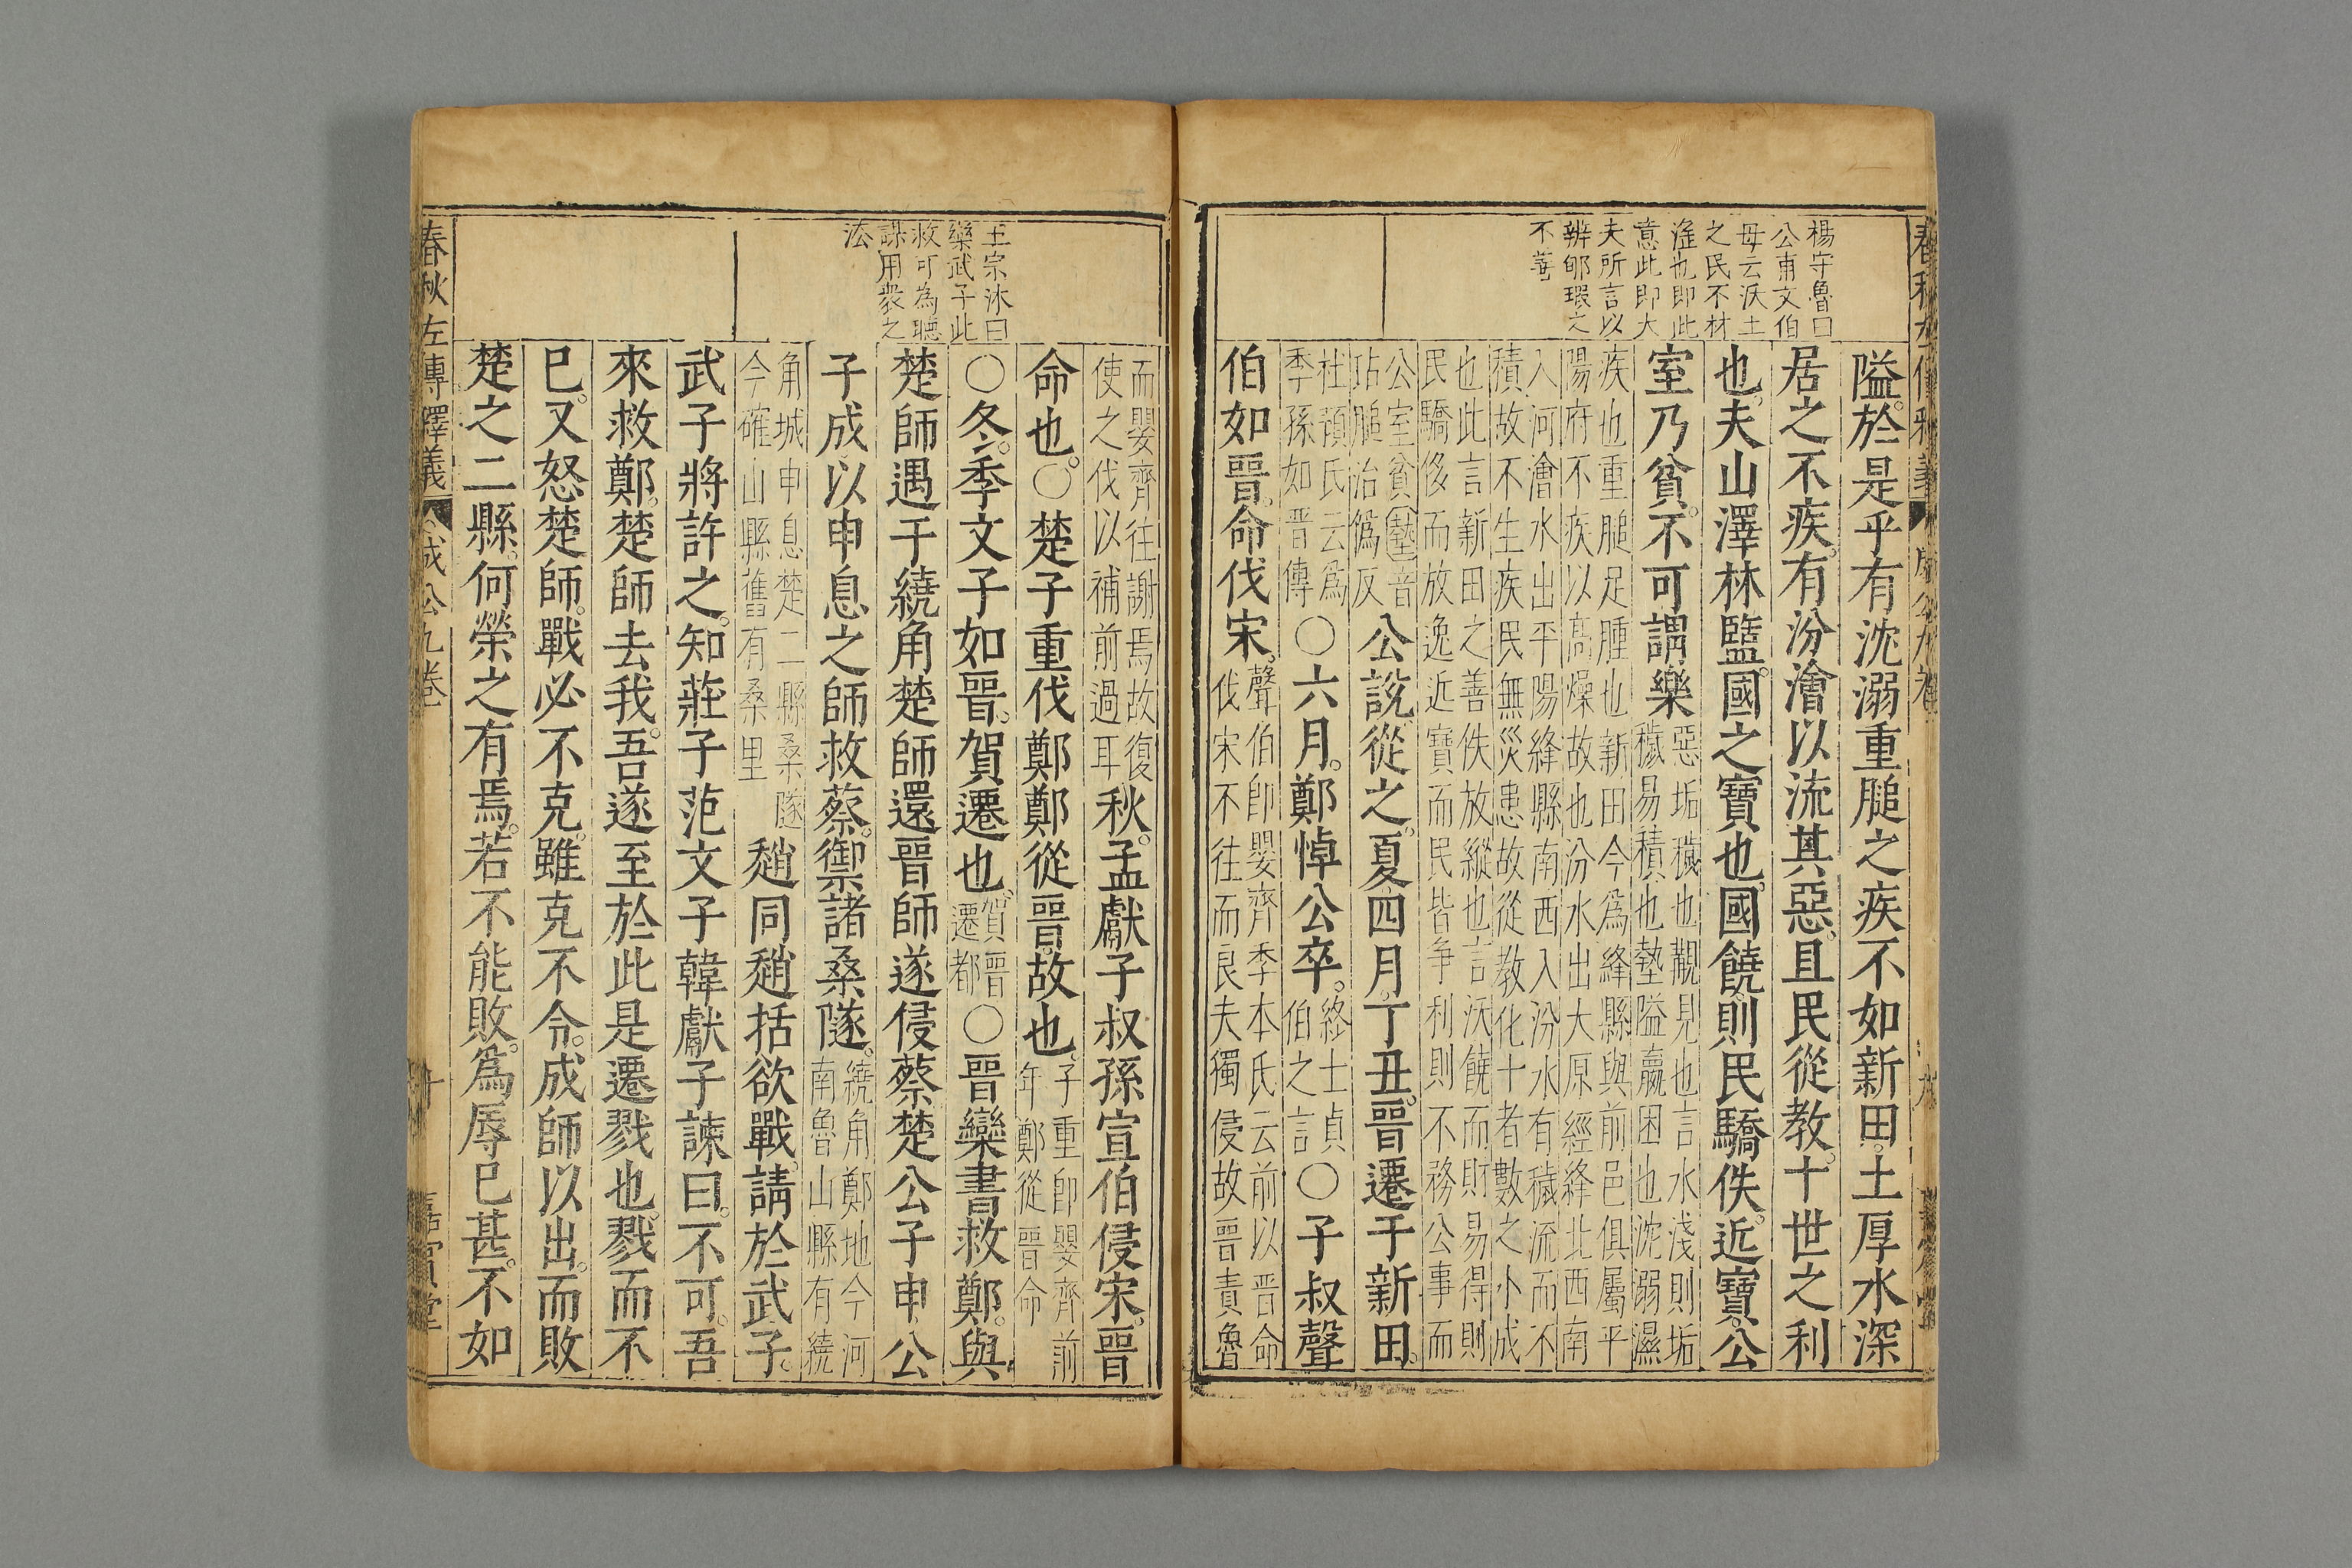 楊守魯曰
公甫文伯
母云沃土
之民不材
淫也即此
意此即大
夫所言以
辨郇瑕之
不善
隘於是乎有沈溺重膇之疾不如新田土厚水深
居之不疾有汾澮以流其惡且民從教十世之利
也夫山澤林鹽國之寶也國饒則民驕佚近寶公
室乃貧不可謂樂
惡垢穢也覯見也言水淺則垢
穢易積也墊隘羸困也沈溺濕
疾也重膇足腫也新田今爲絳縣與前邑俱屬平
陽府不疾以高燥故也汾水出大原經絳北西南
入河澮水出平陽絳縣南西入汾水有穢流而不
積故不生疾民無災患故從教化十者數之小成
也此言新田之善佚放縱也言沃饒而財易得則
民驕侈而放逸近寶而民皆争利則不務公事而
公室貧墊音
玷膇治僞反
公說從之夏四月丁丑晉遷于新田
杜預氏云爲
季孫如晋傳
〇六月鄭悼公卒
終士貞
伯之言
〇子叔聲
伯如晉命伐宋
聲伯即嬰齊季本氏云前以晋命
伐宋不往而良夫獨侵故晉責魯
王宗沐曰
欒武子此
救可為聽
謀用衆之
法
而嬰齊往謝焉故復
使之伐以補前過耳
秋孟獻子叔孫宣伯侵宋晉
命也〇楚子重伐鄭鄭從晉故也
子重即嬰齊前
年鄭從晉命
〇冬季文子如晉賀遷也
賀晉
遷都
〇晉欒書救鄭與
楚師遇于繞角楚師還晉師遂侵蔡楚公子申公
子成以申息之師救蔡禦諸桑隧
繞角鄭地今河
南魯山縣有繞
角城申息楚二縣桑隧
今確山縣舊有桑里
趙同趙括欲戰請於武子
武子將許之知莊子范文子韓獻子諫曰不可吾
來救鄭楚師去我吾遂至於此是遷戮也戮而不
已又怒楚師戰必不克雖克不令成師以出而敗
楚之二縣何榮之有焉若不能敗爲辱已甚不如
春秋左傳釋義
成公九卷